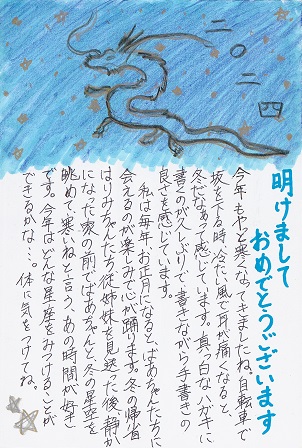 二〇二四
明けまして
おめでとうございます
今年もやっと寒くなってきましたね。自転車で
坂を下る時、冷たい風で耳が痛くなると、
冬だなぁって感じています。真っ白なハガキに
書くのが久しぶりで、書きながら手書きの
良さを感じています。
私は毎年、お正月になると、ばあちゃんたちに
会えるのが楽しみで心が踊ります。冬の帰省
はりみちゃんたち従姉妹を見送った後、静か
になった家の前でばあちゃんと、冬の星空を
眺めて、寒いねと言う、あの時間が好き
です。今年はどんな星座をみつけることが
できるかな…。体に気をつけてね。